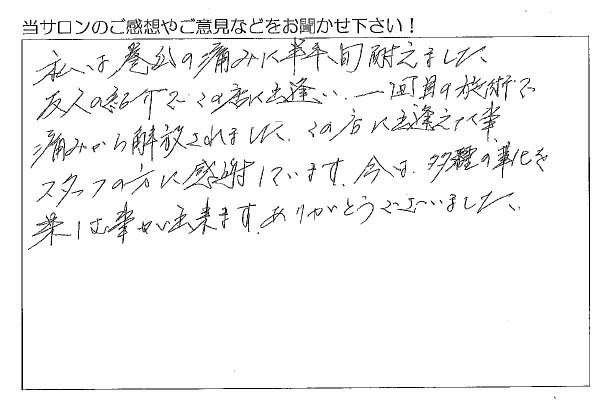 当サロンのご感想やご意見などをお聞かせ下さい！
私は巻爪の痛みに半年間耐えました、
友人の紹介でこの店に出逢い、一回目の施術で
痛みから解放されました、この店に出逢えた事、
スタッフの方に感謝しています。今は、多種の
楽しむ事が出来ます。ありがとうございました。